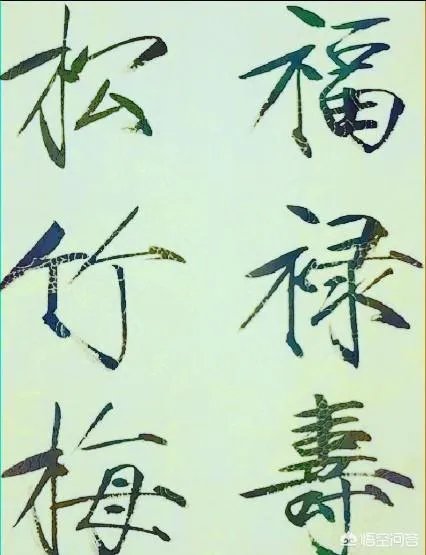 福禄寿
松竹梅
悟空问答